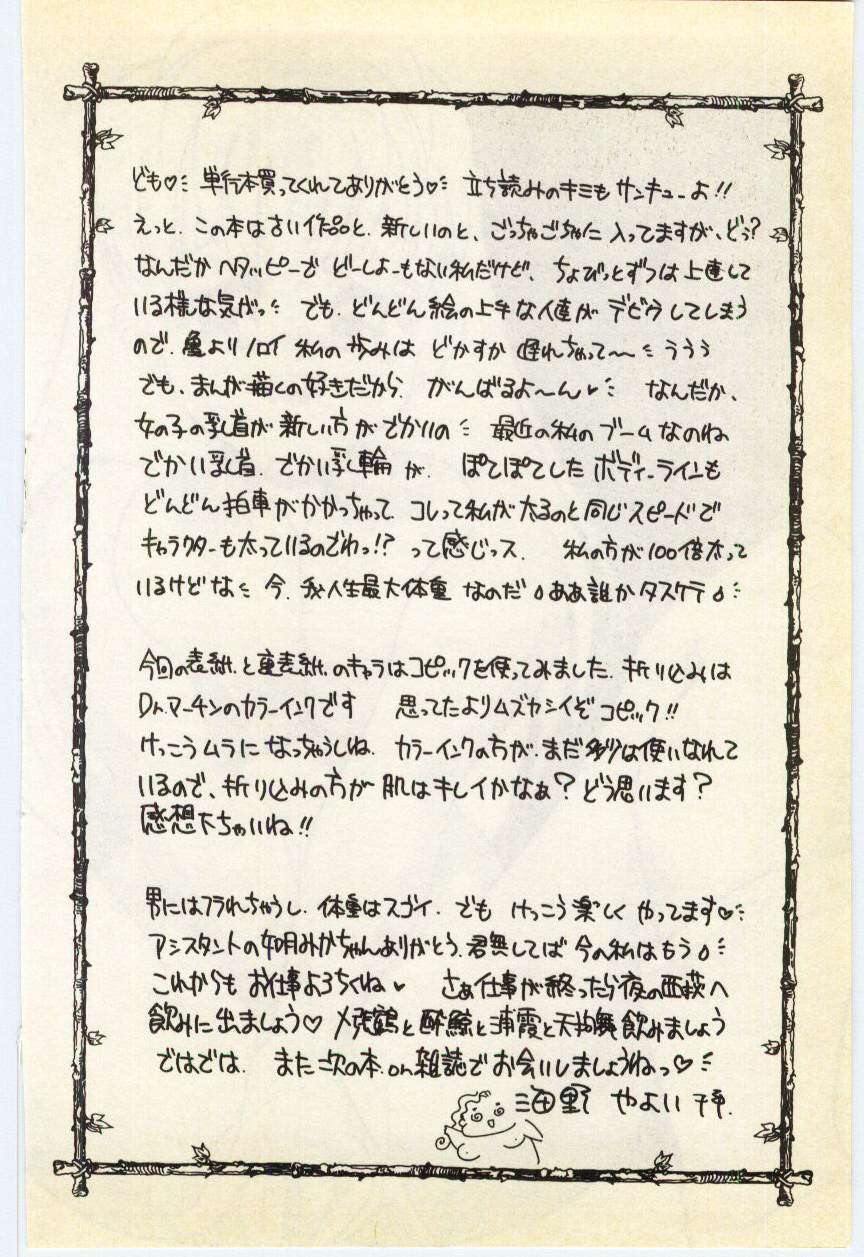 ども♡ 単行本買ってくれてありがとう♡ 立ち読みのキミもサンキューよ!!
えっと、この本は古い作品と、新しいのと、ごっちゃごちゃに入ってますが、どぅ?
なんだかヘタッピーで どーしょーもない私だけど、ちょびっとずつは上達して
いる様な気がっ でも、どんどん絵の上手な人達が デビウしてしまう
ので、亀よりノロイ 私の歩みは どかすか 遅れちゃって〜 ううう
でも、まんが描くの好きだから、がんばるよ〜ん♥ なんだか、
女の子の乳首が新しい方がでかいの 最近の私のブームなのね
でかい乳首、でかい乳輪が、ぽてぽてしたボディーラインも
どんどん拍車がかかっちゃって、コレって私が太るのと同じスピードで
キャラクターも太っているのでわっ!? って感じっス、 私の方が100倍太って
いるけどな 今、我人生最大体重 なのだ ああ誰かタスケテ
今回の表紙と裏表紙のキャラはコピックを使ってみました、折り込みは
Dr.マーチンのカラーインクです 思ってたよりムズカシイぞコピック!!
けっこうムラになっちゃうしね、カラーインクの方が、まだ多少は使いなれて
いるので、折り込みの方が 肌はキレイかなぁ? どう思います?
感想下ちゃいね!!
男にはフラれちゃうし、体重はスゴイ、でも けっこう楽しく やってます♡
アシスタントの如月みかちゃんありがとう、君無してば 今の私はもう
これからも お仕事よろちくね♥ さぁ仕事が終ったら夜の西荻へ
飲みに出ましょう♡ 〆張鶴と酔鯨と浦霞と天狗舞飲みましょう
ではでは、また次の本、on雑誌でお会いしましょうねっ♡
海野 やよい 拝.